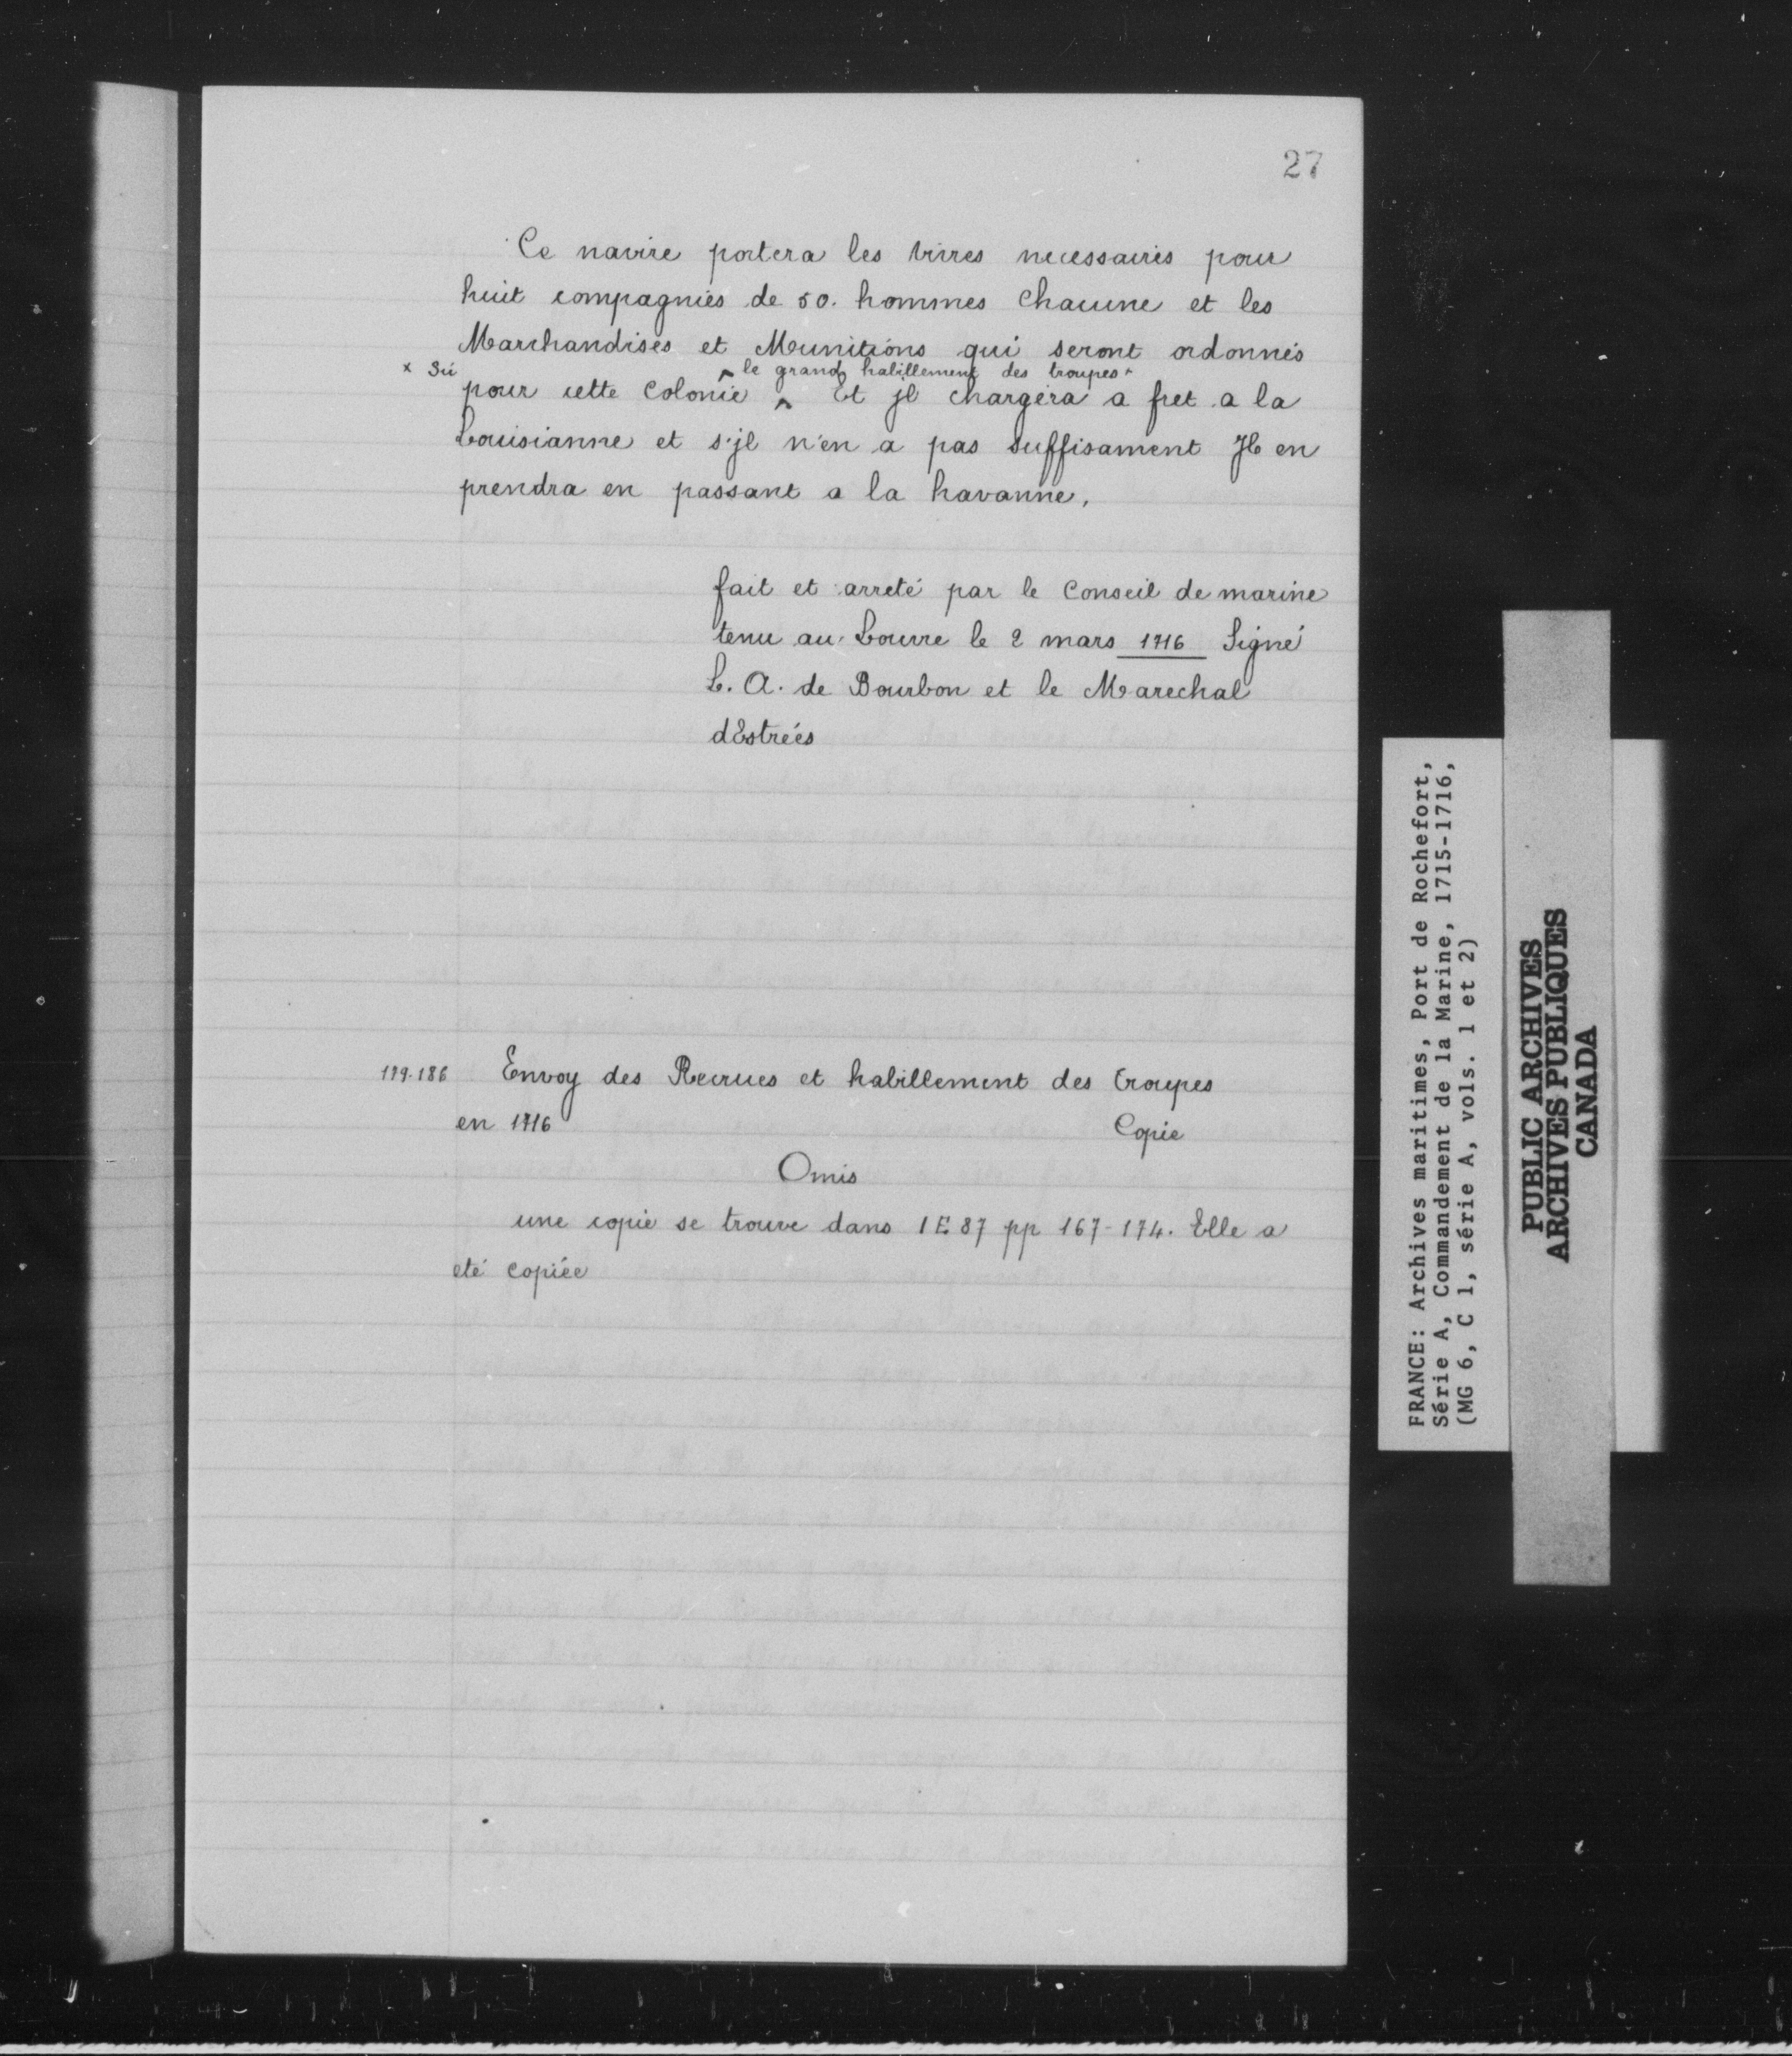 27
Ce navire portera les vivres necessaires pour
huit compagnies de 50. hommes chacune et les
Marchandises et Munitions qui seront ordonnés
x Sic
le grand habillement des troupes x
pour cette Colonie ^ Et jl chargera a fret a la
Louisianne et s'jl n'en a pas suffisament Jl en
prendra en passant a la havanne.
fait et arreté par le Conseil de marine
tenu au Louvre le 2 mars 1716 Signé
L. A. de Bourbon et le Marechal
dEstrées
179-186 Envoy des Recrues et habillement des troupes
en 1716 Copie
Omis
une copie se trouve dans 1 E 87 pp 167-174. Elle a
eté copiée
FRANCE: Archives maritimes, Port de Rochefort,
Série A, Commandement de la Marine, 1715-1716,
(MG 6, C 1, série A, vols. 1 et 2)
PUBLIC ARCHIVES
ARCHIVES PUBLIQUES
CANADA